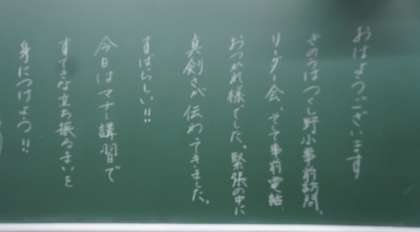 おはようございます
きのうはつくし野小事前訪問、
リーダー会、そして事前電話、
おつかれ様でした。緊張の中に
真剣さが伝わってきました。
すばらしい!!
今日はマナー講習で
すてきな立ち振るまいを
身につけよう!!